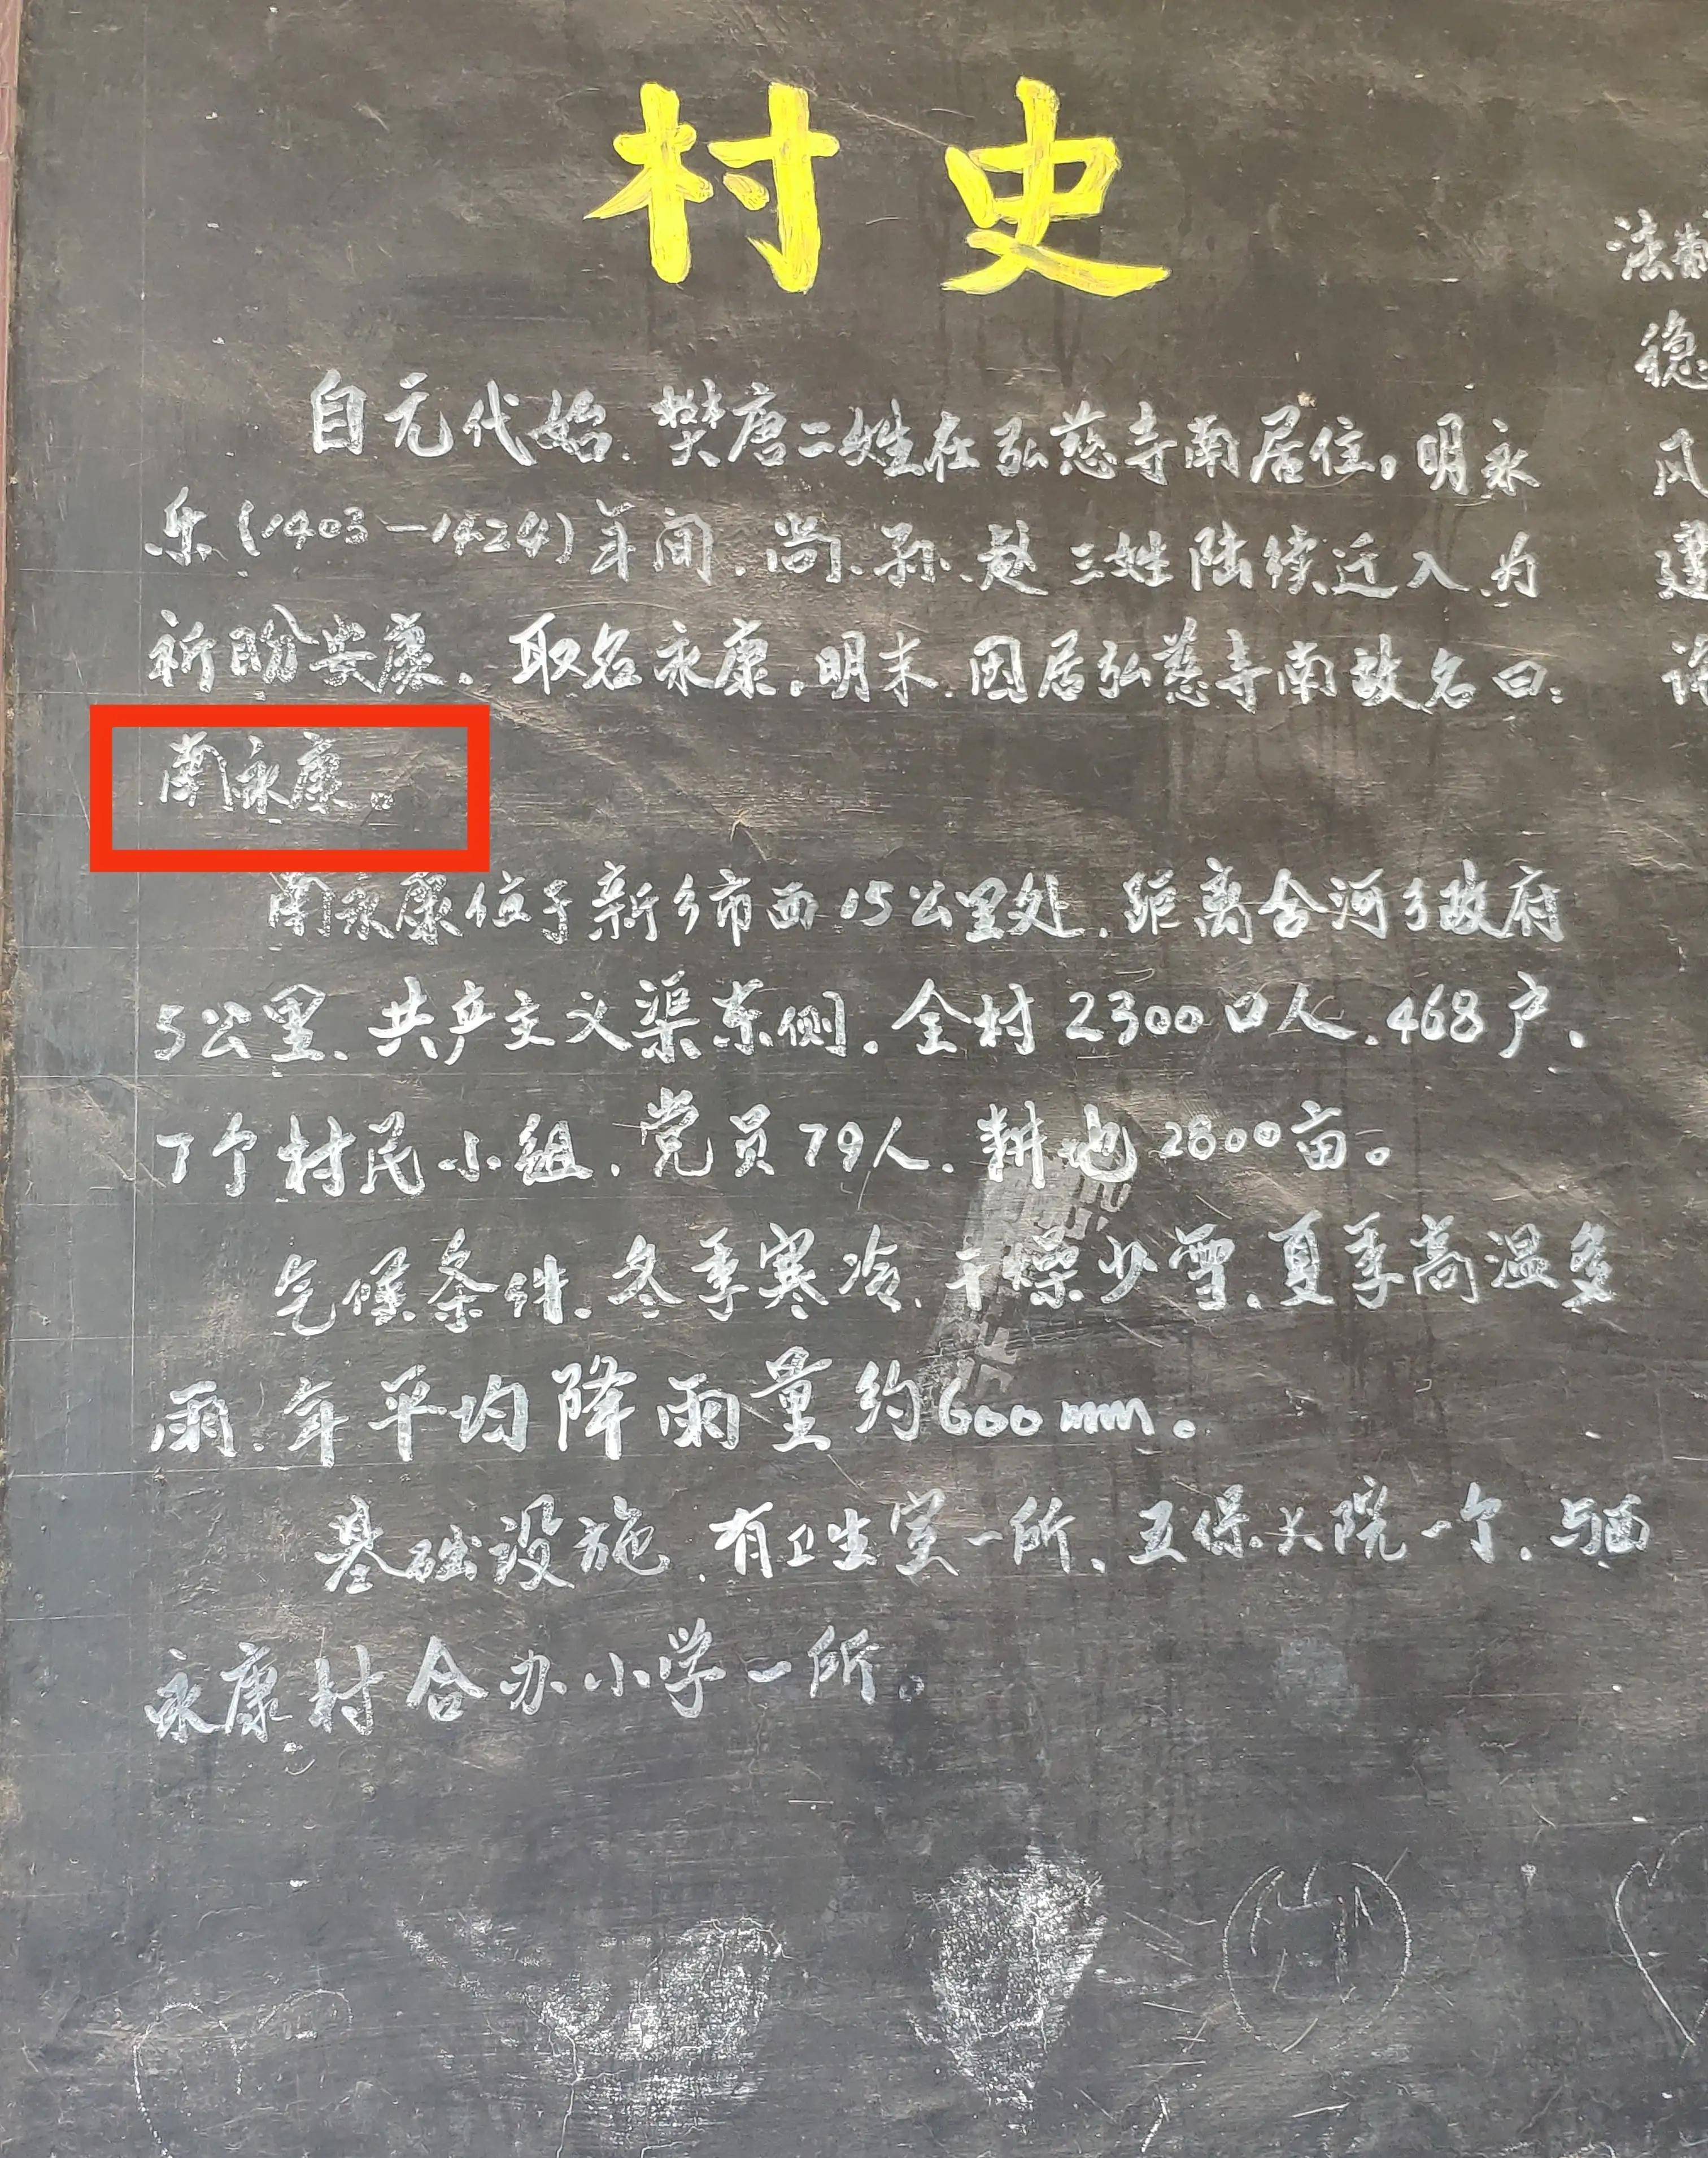 村史
自元代始.樊唐二姓在弘慈寺南居住。明永
乐(1403—1424)年间.尚.孙.赵三姓陆续迁入为
祈盼安康.取名永康.明末.因居弘慈寺南故名曰:
南永康。
南永康位于新乡市西15公里处.距离合河乡政府
5公里.共产主义渠东侧.全村2300口人.468户.
7个村民小组.党员79人.耕地2800亩。
气候条件.冬季寒冷.干燥少雪.夏季高温多
雨.年平均降雨量约600mm。
基础设施.有卫生室一所.五保大院一个.与西
永康村合办小学一所。
法
稳
风